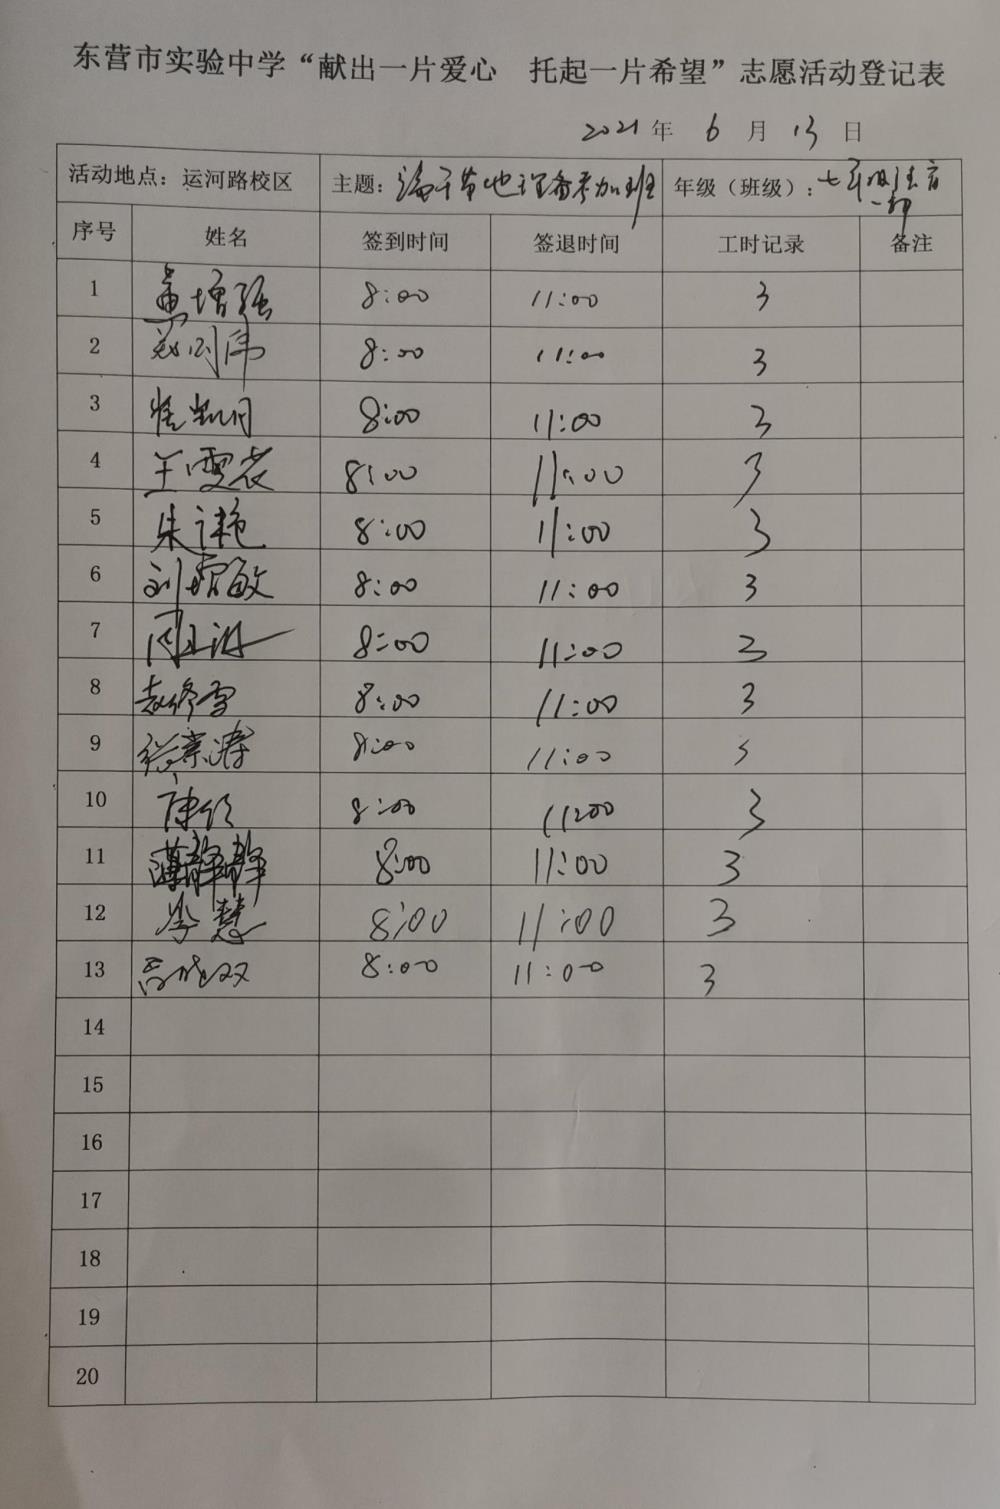 东营市实验中学“献出一片爱心 托起一片希望”志愿活动登记表
2021年 6 月 13 日
活动地点：运河路校区 主题：端午节地理备考加班 年级（班级）：七年级
序号 姓名 签到时间 签退时间 工时记录 备注
1 增强 8:00 11:00 3
2 8:00 11:00 3
3 8:00 11:00 3
4 王雪 8:00 11:00 3
5 朱艳 8:00 11:00 3
6 刘敏 8:00 11:00 3
7 周 8:00 11:00 3
8 赵修雪 8:00 11:00 3
9 张景涛 8:00 11:00 3
10 8:00 11:00 3
11 薄静静 8:00 11:00 3
12 李慧 8:00 11:00 3
13 双 8:00 11:00 3
14
15
16
17
18
19
20